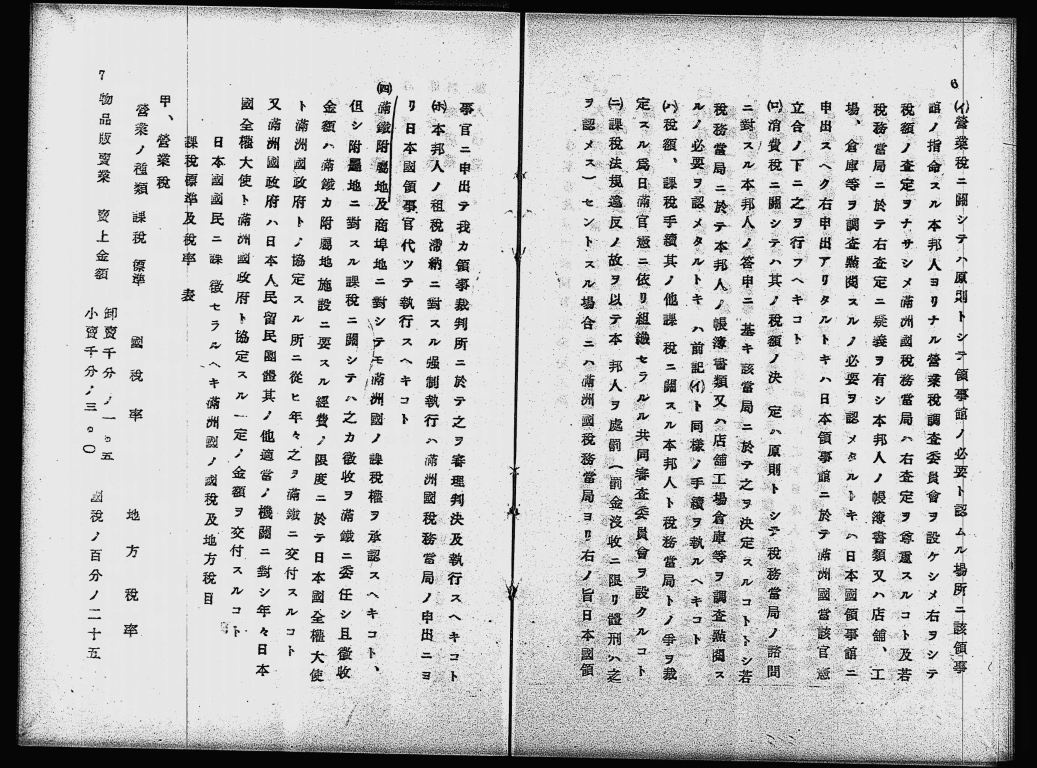 6
(イ)營業稅ニ關シテハ原則トシテ領事館ノ必要ト認ムル場所ニ該領事
館ノ指命スル本邦人ヨリナル營業稅調査委員會ヲ設ケシメ右ヲシテ
稅額ノ査定ヲナサシメ滿洲國稅務當局ハ右査定ヲ尊重スルコト及若
稅務當局ニ於テ右査定ニ疑義ヲ有シ本邦人ノ帳簿書類又ハ店舖、工
場、倉庫等ヲ調査點閱スルノ必要ヲ認メタルトキハ日本國領事館ニ
申出スヘク右申出アリタルトキハ日本領事館ニ於テ滿洲國當該官憲
立合ノ下ニ之ヲ行フヘキコト
(ロ)消費稅ニ關シテハ其ノ稅額ノ決定ハ原則トシテ稅務當局ノ諮問
ニ對スル本邦人ノ答申ニ基キ該當局ニ於テ之ヲ決定スルコトトシ若
稅務當局ニ於テ本邦人ノ帳簿書類又ハ店舖工場倉庫等ヲ調査點閱ス
ルノ必要ヲ認メタルトキハ前記(イ)ト同樣ノ手續ヲ執ルヘキコト
(ハ)稅額、課稅手續其ノ他課稅ニ關スル本邦人ト稅務當局トノ爭ヲ裁
定スル爲日滿官憲ニ依リ組織セラルル共同審査委員會ヲ設クルコト
(ニ)課稅法規違反ノ故ヲ以テ本邦人ヲ處罰(罰金沒收ニ限リ體刑ハ之
ヲ認メス)セントスル場合ニハ滿洲國稅務當局ヨリ右ノ旨日本國領
事官ニ申出テ我カ領事裁判所ニ於テ之ヲ審理判決及執行スヘキコト
(ホ)本邦人ノ租稅滯納ニ對スル强制執行ハ滿洲國稅務當局ノ申出ニヨ
リ日本國領事官代ツテ執行スヘキコト
(四)滿鐵附屬地及商埠地ニ對シテモ滿洲國ノ課稅權ヲ承認スヘキコト、
但シ附屬地ニ對スル課稅ニ關シテハ之カ徵收ヲ滿鐵ニ委任シ且徵收
金額ハ滿鐵カ附屬地施設ニ要スル經費ノ限度ニ於テ日本國全權大使
ト滿洲國政府トノ協定スル所ニ從ヒ年々之ヲ滿鐵ニ交付スルコト
又滿洲國政府ハ日本人民留民團證其ノ他適當ノ機關ニ對シ年々日本
國全權大使ト滿洲國政府ト協定スル一定ノ金額ヲ交付スルコト
日本國國民ニ課徵セラルヘキ滿洲國ノ國稅及地方稅目
課稅標準及稅率表
甲、營業稅
營業ノ種類 課稅標準 國稅率 地方稅率
7 物品販賣業 賣上金額 卸賣千分ノ一・五 國稅ノ百分ノ二十五
小賣千分ノ三・〇